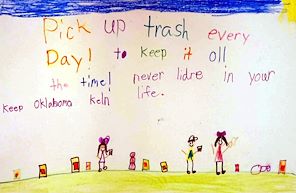 Pick up trash every
Day! to keep it oll
the time! never lidre in your
keep oklahoma keln life.